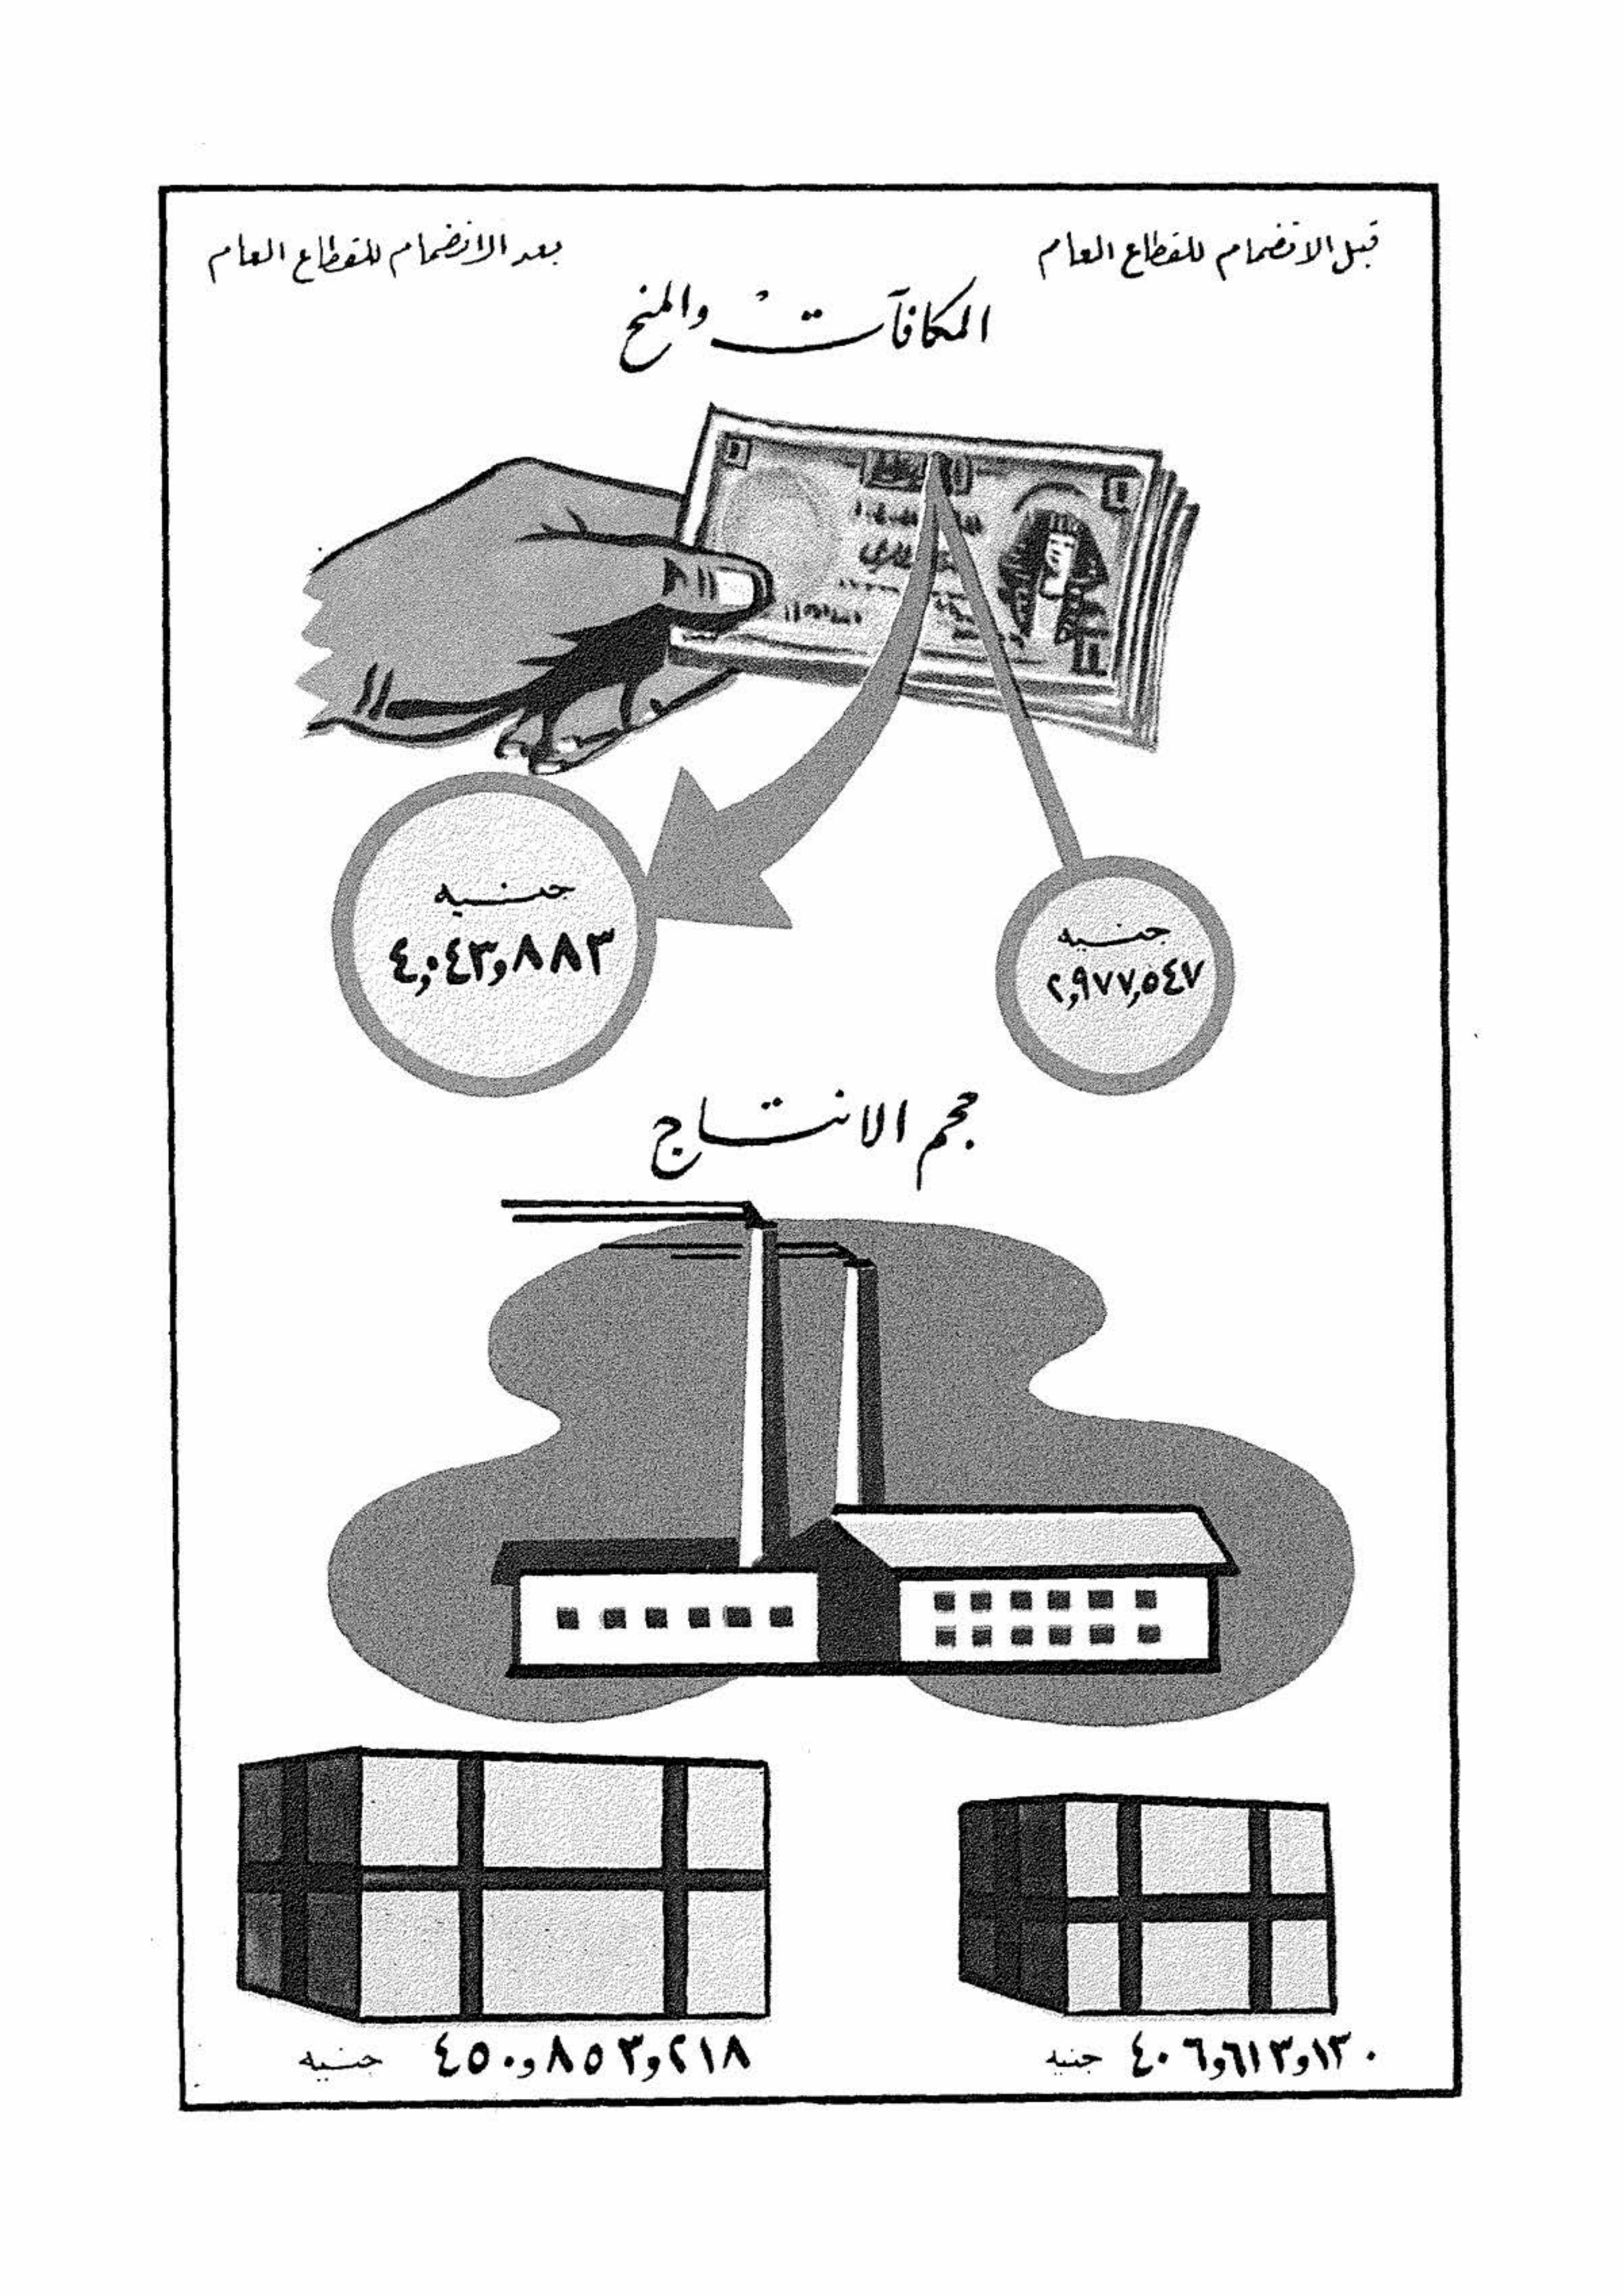 قبل الانضمام للقطاع العام
بعد الانضمام للقطاع العام
المكافآت والمنح
جنيه
٢,٩٧٧,٥٤٧
جنيه
٤,٠٤٣,٨٨٣
حجم الانتاج
٤٠٦,٦١٣,١٣٠ جنيه
٤٥٠,٨٥٣,٢١٨ جنيه